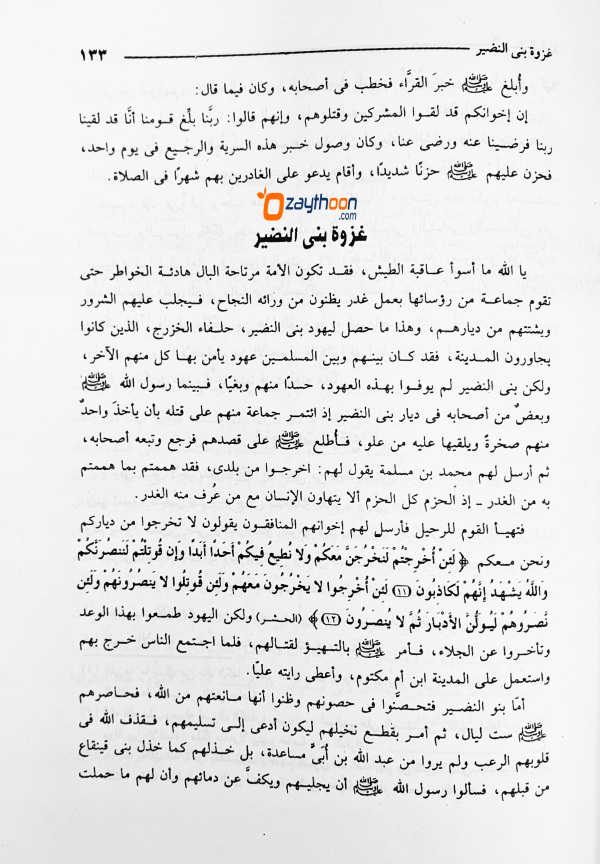 غزوة بنى النضير ١٣٣
وأُبلغ ﷺ خبرَ القرَّاء فخطب فى أصحابه، وكان فيما قال:
إن إخوانكم قد لقوا المشركين وقتلوهم، وإنهم قالوا: ربَّنا بلِّغ قومنا أنَّا قد لقينا
ربنا فرضينا عنه ورضى عنا، وكان وصول خبر هذه السرية والرجيع فى يوم واحد،
فحزن عليهم ﷺ حزنًا شديدًا، وأقام يدعو على الغادرين بهم شهرًا فى الصلاة.
Ozaythoon
.com
غزوة بنى النضير
يا الله ما أسوأ عاقبة الطيش، فقد تكون الأمة مرتاحة البال هادئة الخواطر حتى
تقوم جماعة من رؤسائها بعمل غدر يظنون من ورائه النجاح، فيجلب عليهم الشرور
ويشتتهم من ديارهم، وهذا ما حصل ليهود بنى النضير، حلفاء الخزرج، الذين كانوا
يجاورون المدينة، فقد كان بينهم وبين المسلمين عهود يأمن بها كل منهم الآخر،
ولكن بنى النضير لم يوفوا بهذه العهود، حسدًا منهم وبغيًا، فبينما رسول الله ﷺ
وبعضٌ من أصحابه فى ديار بنى النضير إذ ائتمر جماعة منهم على قتله بأن يأخذَ واحدٌ
منهم صخرةً ويلقيها عليه من علو، فأُطلع ﷺ على قصدهم فرجع وتبعه أصحابه،
ثم أرسل لهم محمد بن مسلمة يقول لهم: اخرجوا من بلدى، فقد هممتم بما هممتم
به من الغدر ـ إذ الحزم كل الحزم ألا يتهاون الإنسان مع من عُرف منه الغدر.
فتهيأ القوم للرحيل فأرسل لهم إخوانهم المنافقون يقولون لا تخرجوا من دياركم
ونحن معكم ﴿ لَئِنْ أُخْرِجْتُمْ لَنَخْرُجَنَّ مَعَكُمْ وَلَا نُطِيعُ فِيكُمْ أَحَدًا أَبَدًا وَإِن قُوتِلْتُمْ لَنَنصُرَنَّكُمْ
وَاللَّهُ يَشْهَدُ إِنَّهُمْ لَكَاذِبُونَ ﴿١١﴾ لَئِنْ أُخْرِجُوا لا يَخْرُجُونَ مَعَهُمْ وَلَئِن قُوتِلُوا لا يَنصُرُونَهُمْ وَلَئِن
نَّصَرُوهُمْ لَيُوَلُّنَّ الأَدْبَارَ ثُمَّ لا يُنصَرُونَ ﴿١٢﴾﴾ (الحشر) ولكن اليهود طمعوا بهذا الوعد
وتأخروا عن الجلاء، فأمر ﷺ بالتهيؤ لقتالهم، فلما اجتمع الناس خرج بهم
واستعمل على المدينة ابن أم مكتوم، وأعطى رايته عليّا.
أمّا بنو النضير فتحصنَّوا فى حصونهم وظنوا أنها مانعتهم من الله، فحاصرهم
ﷺ ست ليال، ثم أمر بقطع نخيلهم ليكون أدعى إلى تسليمهم، فقذف الله فى
قلوبهم الرعب ولم يروا من عبد الله بن أُبَىٍّ مساعدة، بل خذلهم كما خذل بنى قينقاع
من قبلهم، فسألوا رسول الله ﷺ أن يجليهم ويكفَّ عن دمائهم وأن لهم ما حملت